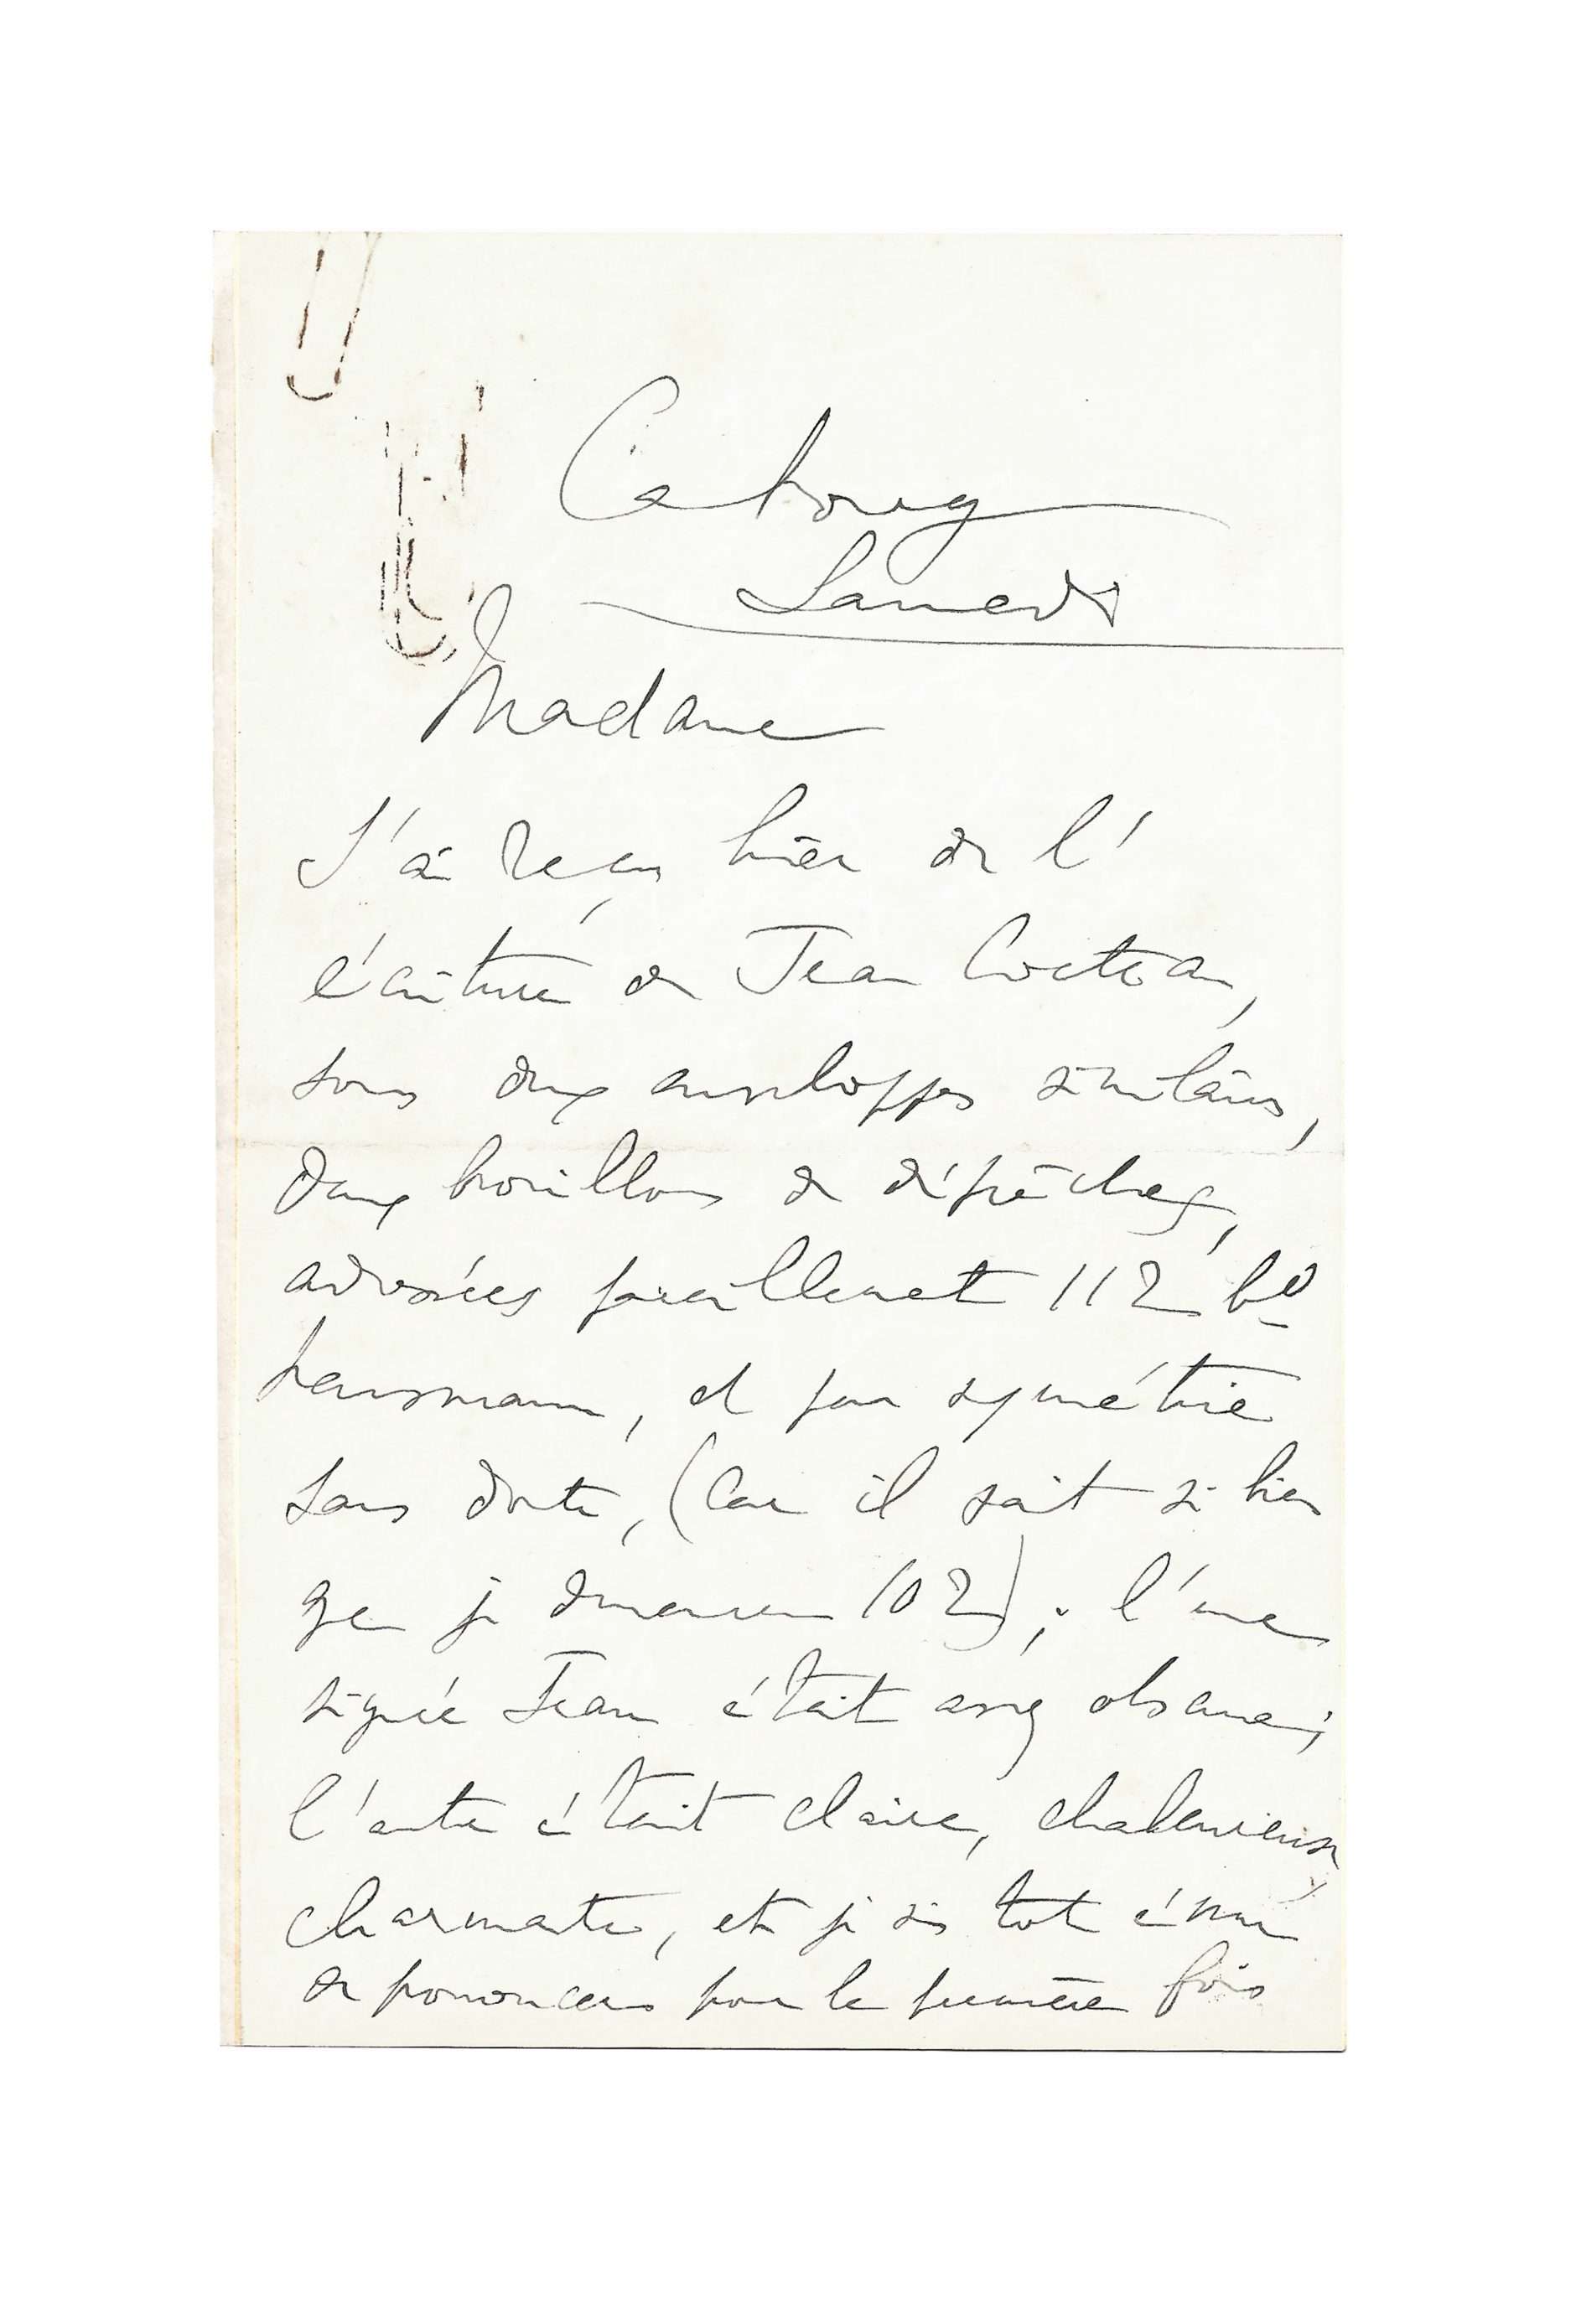 Cabourg
Samedi
Madame
J'ai reçu hier de l'
écriture de Jean Cocteau,
sous deux enveloppes similaires,
deux brouillons de dépêches,
adressées pareillement 112 bd
haussmann, et par symétrie
sans doute, (car il sait si bien
que je demeure 102) ; l'une
signée Jean était assez obscure ;
l'autre était claire, chaleureuse,
charmante, et je suis tout ému
de prononcer pour la première fois